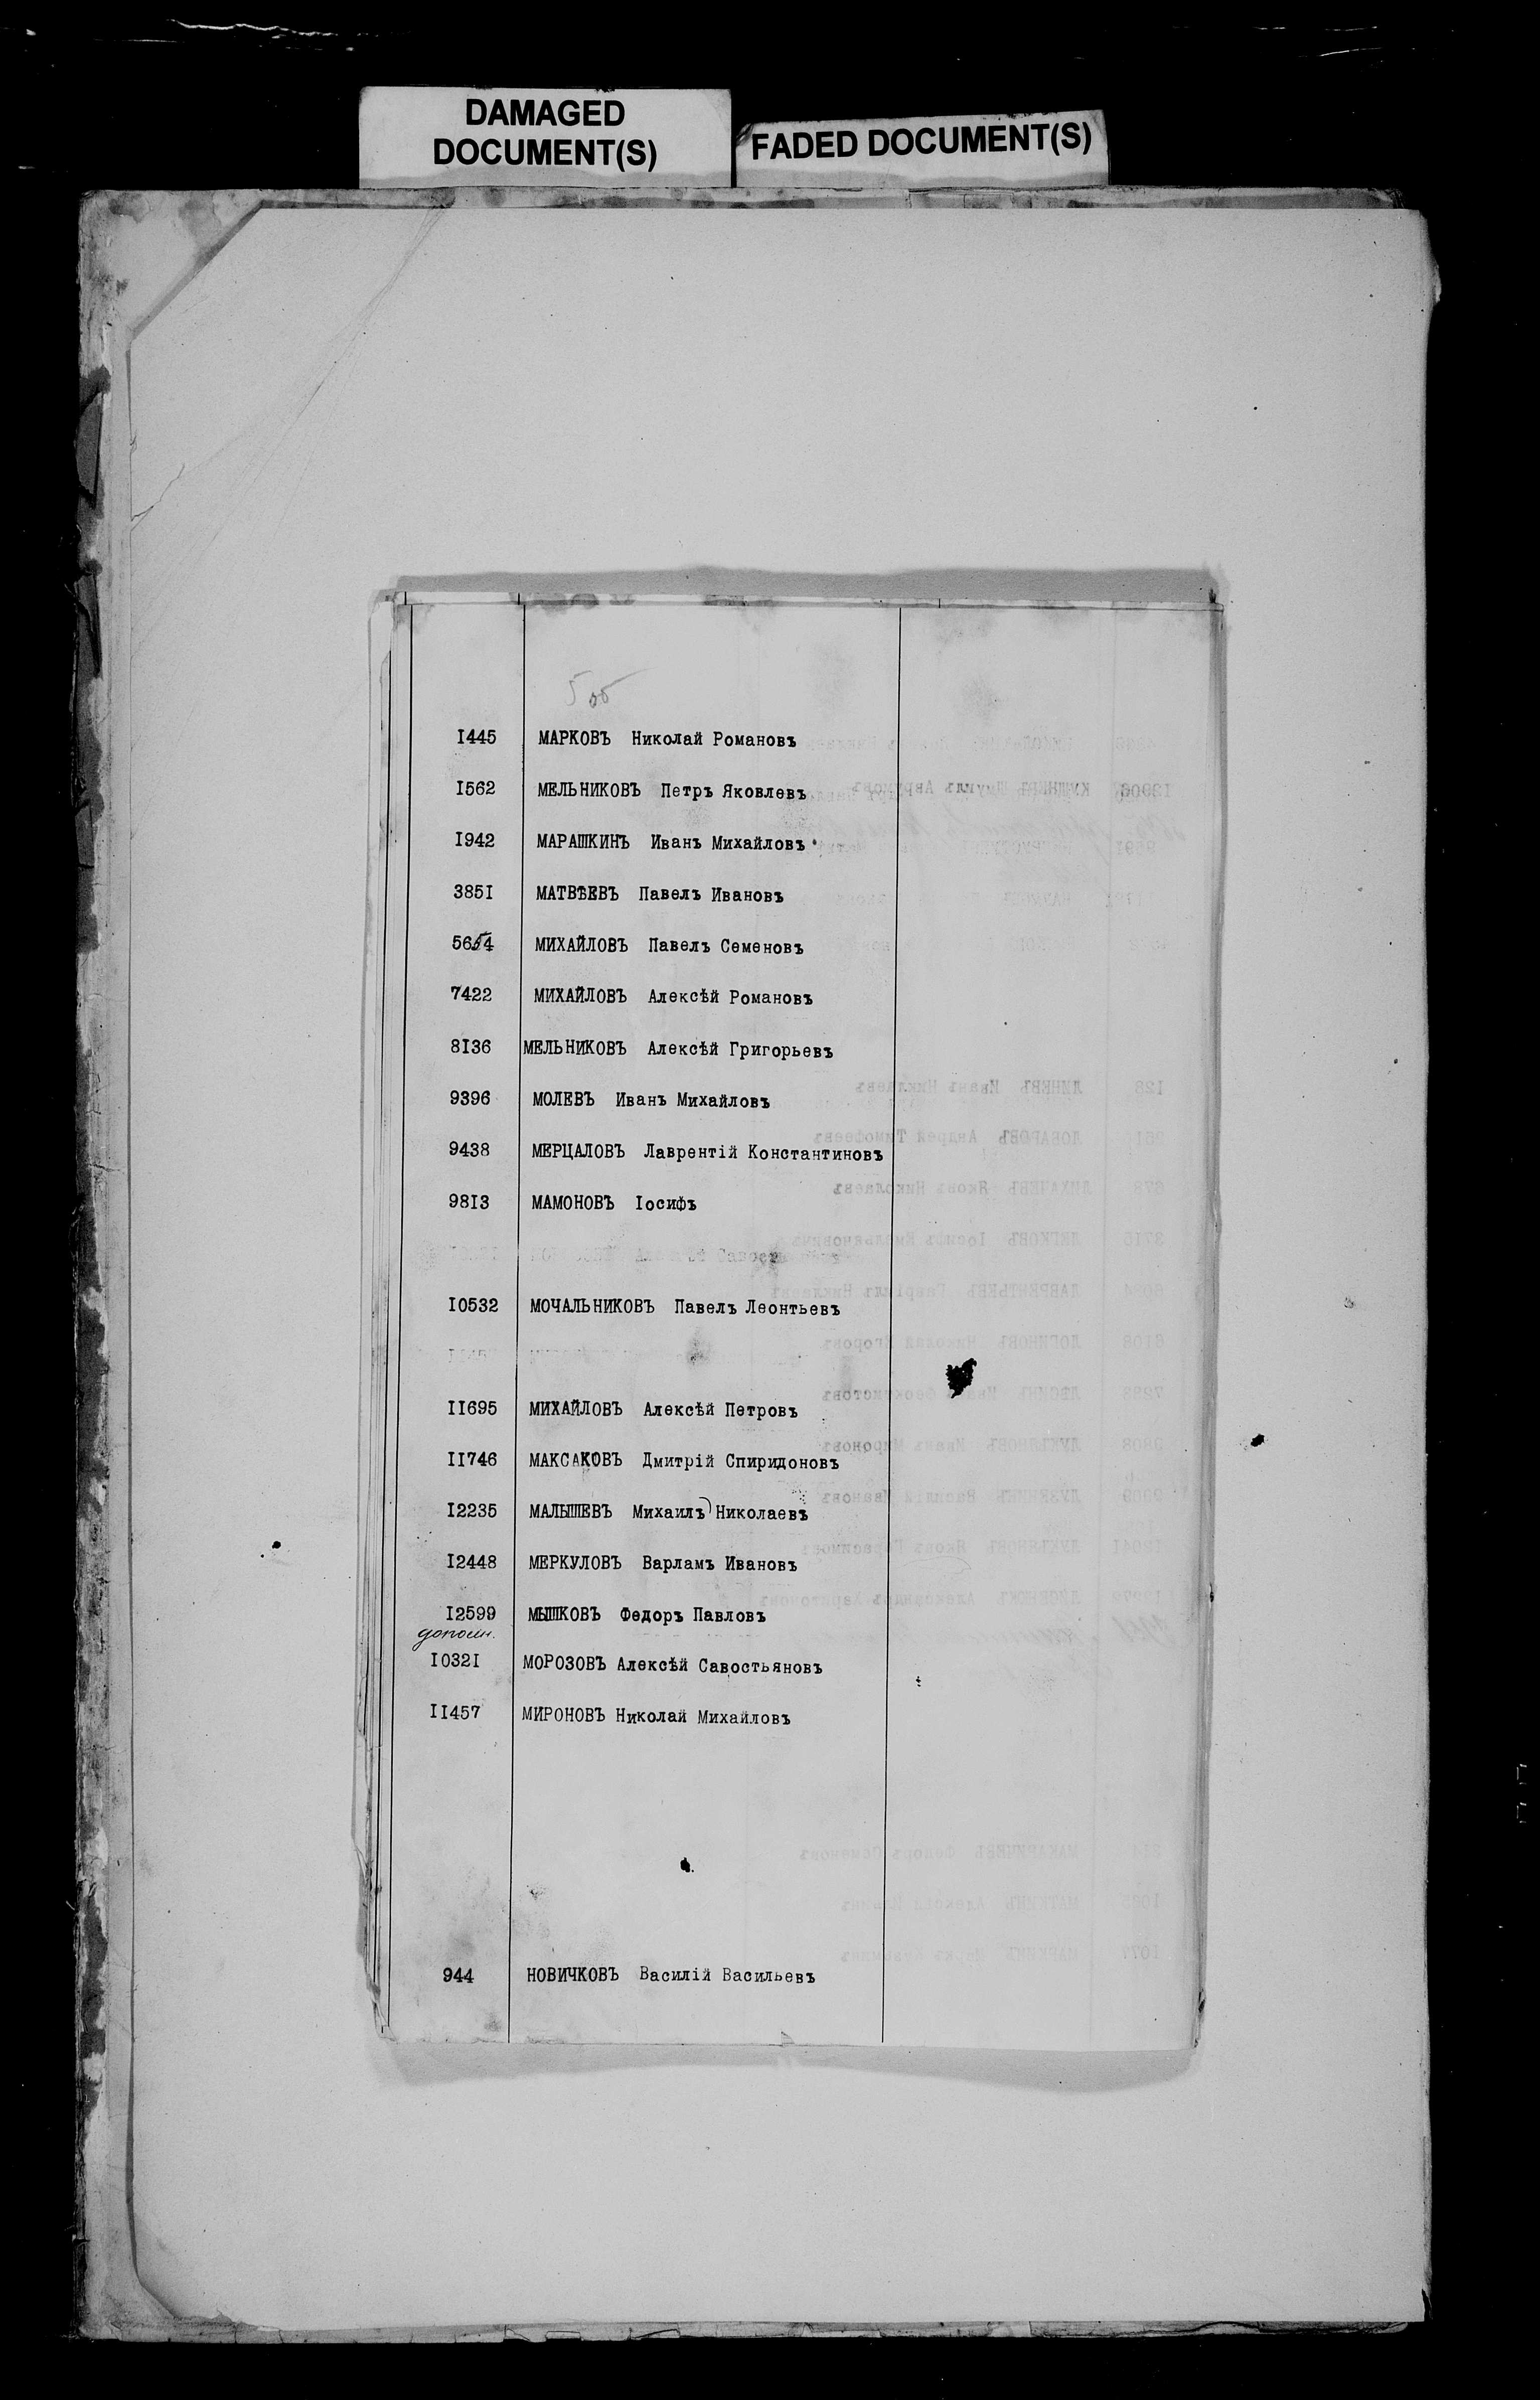 DAMAGED
DOCUMENT(S)
FADED DOCUMENT(S)
I445 МАРКОВЪ Николай Романовъ
I562 МЕЛЬНИКОВЪ Петръ Яковлевъ
I942 МАРАШКИНЪ Иванъ Михайловъ
385I МАТВѢЕВЪ Павелъ Ивановъ
5654 МИХАЙЛОВЪ Павелъ Семеновъ
7422 МИХАЙЛОВЪ Алексѣй Романовъ
8I36 МЕЛЬНИКОВЪ Алексѣй Григорьевъ
9396 МОЛЕВЪ Иванъ Михайловъ
9438 МЕРЦАЛОВЪ Лаврентій Константиновъ
98I3 МАМОНОВЪ Іосифъ
I0532 МОЧАЛЬНИКОВЪ Павелъ Леонтьевъ
II695 МИХАЙЛОВЪ Алексѣй Петровъ
II746 МАКСАКОВЪ Дмитрій Спиридоновъ
I2235 МАЛЫШЕВЪ Михаилъ Николаевъ
I2448 МЕРКУЛОВЪ Варламъ Ивановъ
I2599 МЫШКОВЪ Федоръ Павловъ
дополн.
I032I МОРОЗОВЪ Алексѣй Савостьяновъ
II457 МИРОНОВЪ Николай Михайловъ
944 НОВИЧКОВЪ Василій Васильевъ